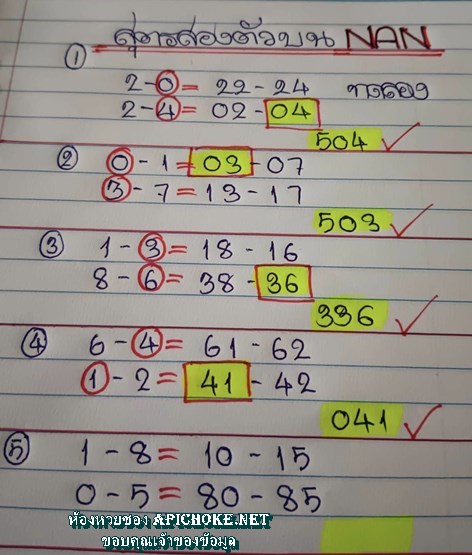 สูตรสองตัวบน NAN
①
2-0= 22-24 ทดลอง
2-4= 02-04
504
② 0-1=03-07
3-7=13-17
503
③ 1-3=18-16
8-6=38-36
336
④ 6-4=61-62
1-2=41-42
041
⑤ 1-8=10-15
0-5=80-85
ห้องหวยซอง APICHOKE.NET
ขอบคุณเจ้าของข้อมูล